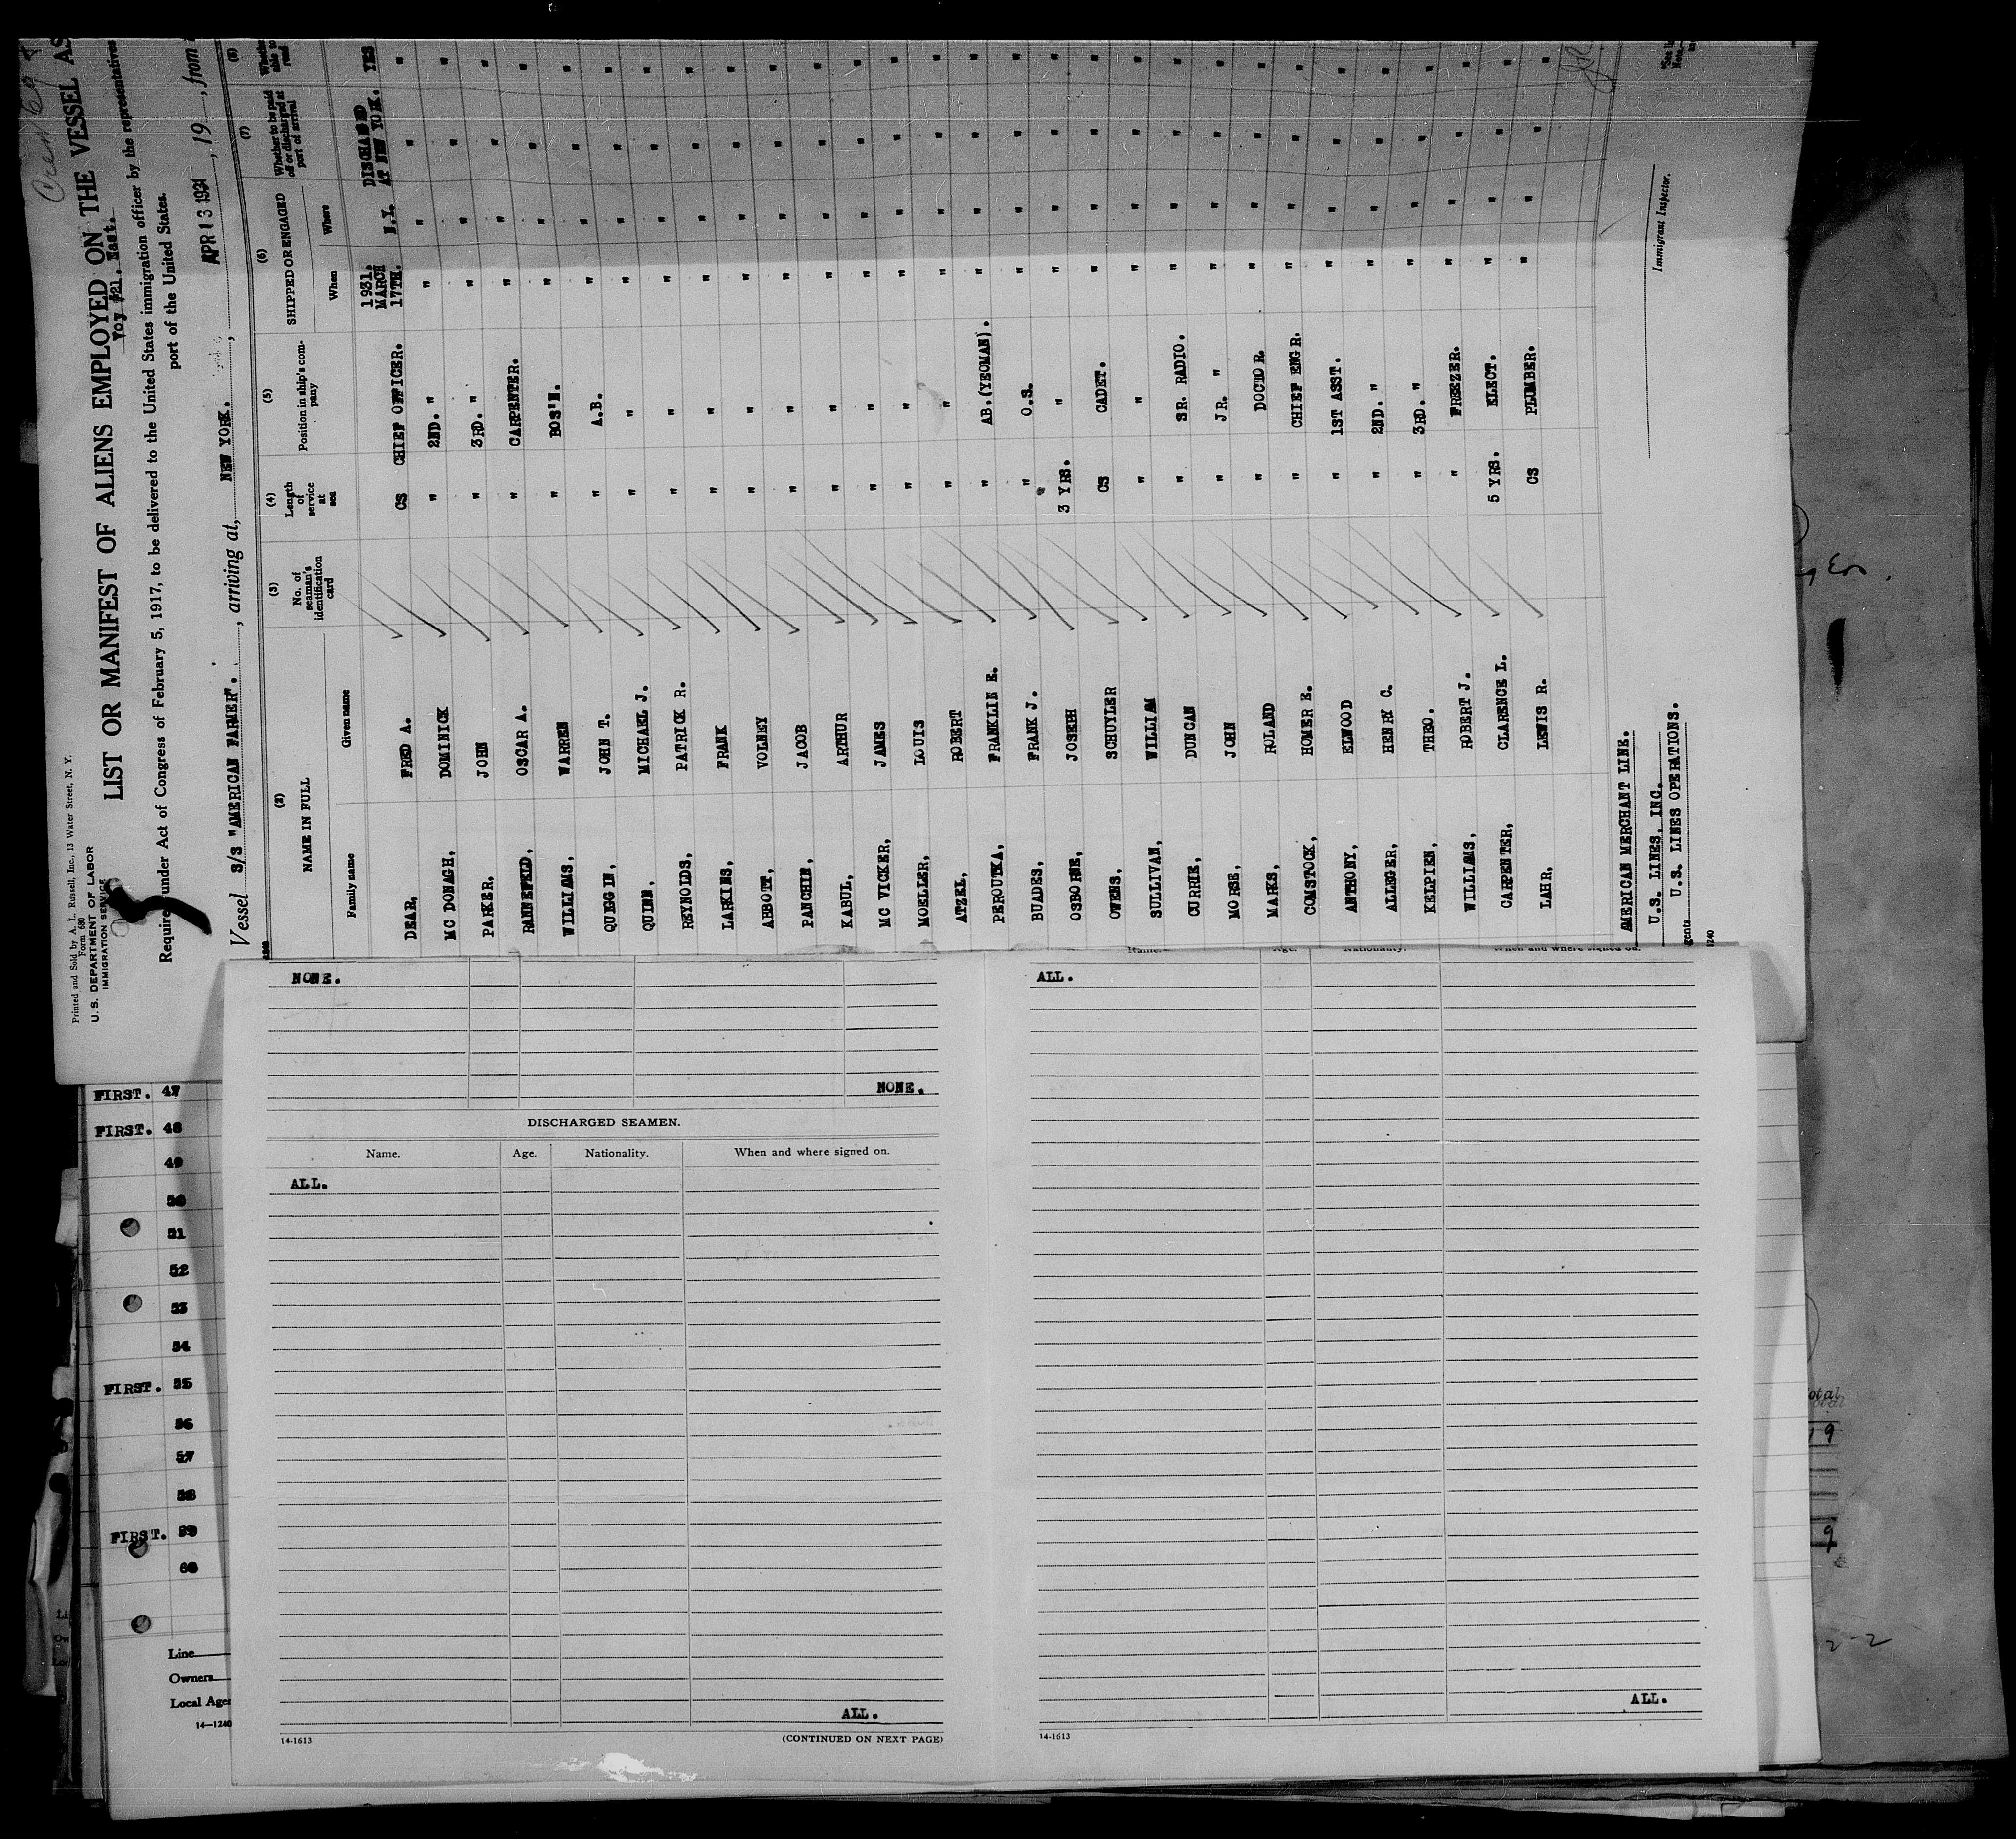 Crew 69
Printed and Sold by A. L. Russell, Inc., 13 Water Street, N. Y.
Form 680
U. S. DEPARTMENT OF LABOR
IMMIGRATION SERVICE
LIST OR MANIFEST OF ALIENS EMPLOYED ON THE VESSEL AS
Voy #21, East.
Required under Act of Congress of February 5, 1917, to be delivered to the United States immigration officer by the representatives
port of the United States.
Vessel S/S "AMERICAN FARMER". , arriving at, NEW YORK. , APR 13 1931 , 19 , from
(2) (3) (4) (5) (6) (7) (8)
NAME IN FULL No. of seaman's identification card Length of service at sea Position in ship's company SHIPPED OR ENGAGED Whether to be paid off or discharged at port of arrival Whether able to read
Family name Given name When Where
DEAR, FRED A. CS CHIEF OFFICER. 1931. MARCH 17TH. N.Y. DISCHARGED AT NEW YORK. YES
MC DONAGH, DOMINICK " 2ND. " " " " "
PARKER, JOHN " 3RD. " " " " "
RANNEFELD, OSCAR A. " CARPENTER. " " " "
WILLIAMS, WARREN " BOS'N. " " " "
QUEGIN, JOHN T. " A.B. " " " "
QUINN, MICHAEL J. " " " " " "
REYNOLDS, PATRICK R. " " " " " "
LARKINS, FRANK " " " " " "
ABBOTT, VOLNEY " " " " " "
PANCHIN, JACOB " " " " " "
KABUL, ARTHUR " " " " " "
MC VICKER, JAMES " " " " " "
MOELLER, LOUIS " " " " " "
ATZEL, ROBERT " " " " " "
PEROUTKA, FRANKLIN E. " AB.(YEOMAN). " " " "
BUADES, FRANK J. " O.S. " " " "
OSBORNE, JOSEPH 3 YRS. " " " " "
OWENS, SCHUYLER CS CADET. " " " "
SULLIVAN, WILLIAM " " " " " "
CURRIE, DUNCAN " SR. RADIO. " " " "
MORSE, JOHN " JR. " " " " "
MARKS, ROLAND " DOCTOR. " " " "
COMSTOCK, HOMER E. " CHIEF ENGR. " " " "
ANTHONY, ELWOOD " 1ST ASST. " " " "
ALLEGER, HENRY C. " 2ND. " " " " "
KELPIEN, THEO. " 3RD. " " " " "
WILLIAMS, ROBERT J. " FREEZER. " " " "
CARPENTER, CLARENCE L. 5 YRS. ELECT. " " " "
LAHR, LEWIS R. CS PLUMBER. " " " "
AMERICAN MERCHANT LINE.
U.S. LINES, INC.
U.S. LINES OPERATIONS.
gents
1240
Immigrant Inspector.
NONE.
NONE.
DISCHARGED SEAMEN.
Name. Age. Nationality. When and where signed on.
ALL.
ALL.
14-1613 (CONTINUED ON NEXT PAGE)
Name. Age. Nationality. When and where signed on.
ALL.
ALL.
14-1613
FIRST. 47
FIRST. 48
49
50
51
52
53
54
FIRST. 55
56
57
58
FIRST. 59
60
Line
Owners
Local Age
14—1240
otal
9
9
2-2